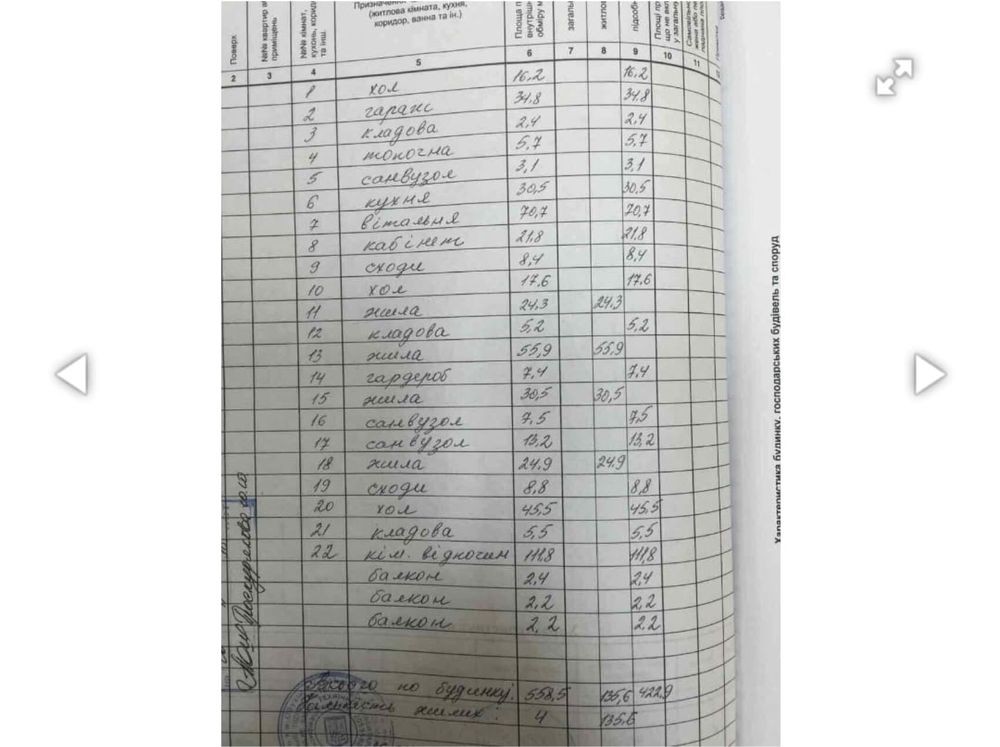 Поверх
приміщень
№№ кімнат,
та інш.
(житлова кімната, кухня,
коридор, ванна та ін.)
2 3 4 5 6 7 8 9 10 11
1 хол 16,2 16,2
2 гараж 34,8 34,8
3 кладова 2,4 2,4
4 топочна 5,7 5,7
5 санвузол 3,1 3,1
6 кухня 30,5 30,5
7 вітальня 70,7 70,7
8 кабінет 21,8 21,8
9 сходи 8,4 8,4
10 хол 17,6 17,6
11 жила 24,3 24,3
12 кладова 5,2 5,2
13 жила 55,9 55,9
14 гардероб 7,4 7,4
15 жила 30,5 30,5
16 санвузол 7,5 7,5
17 санвузол 13,2 13,2
18 жила 24,9 24,9
19 сходи 8,8 8,8
20 хол 45,5 45,5
21 кладова 5,5 5,5
22 кім. відпочин 111,8 111,8
балкон 2,4 2,4
балкон 2,2 2,2
балкон 2,2 2,2
по будинку: 558,5 135,6 422,9
Кількість жилих: 4 135,6
Характеристика будинку, господарських будівель та споруд